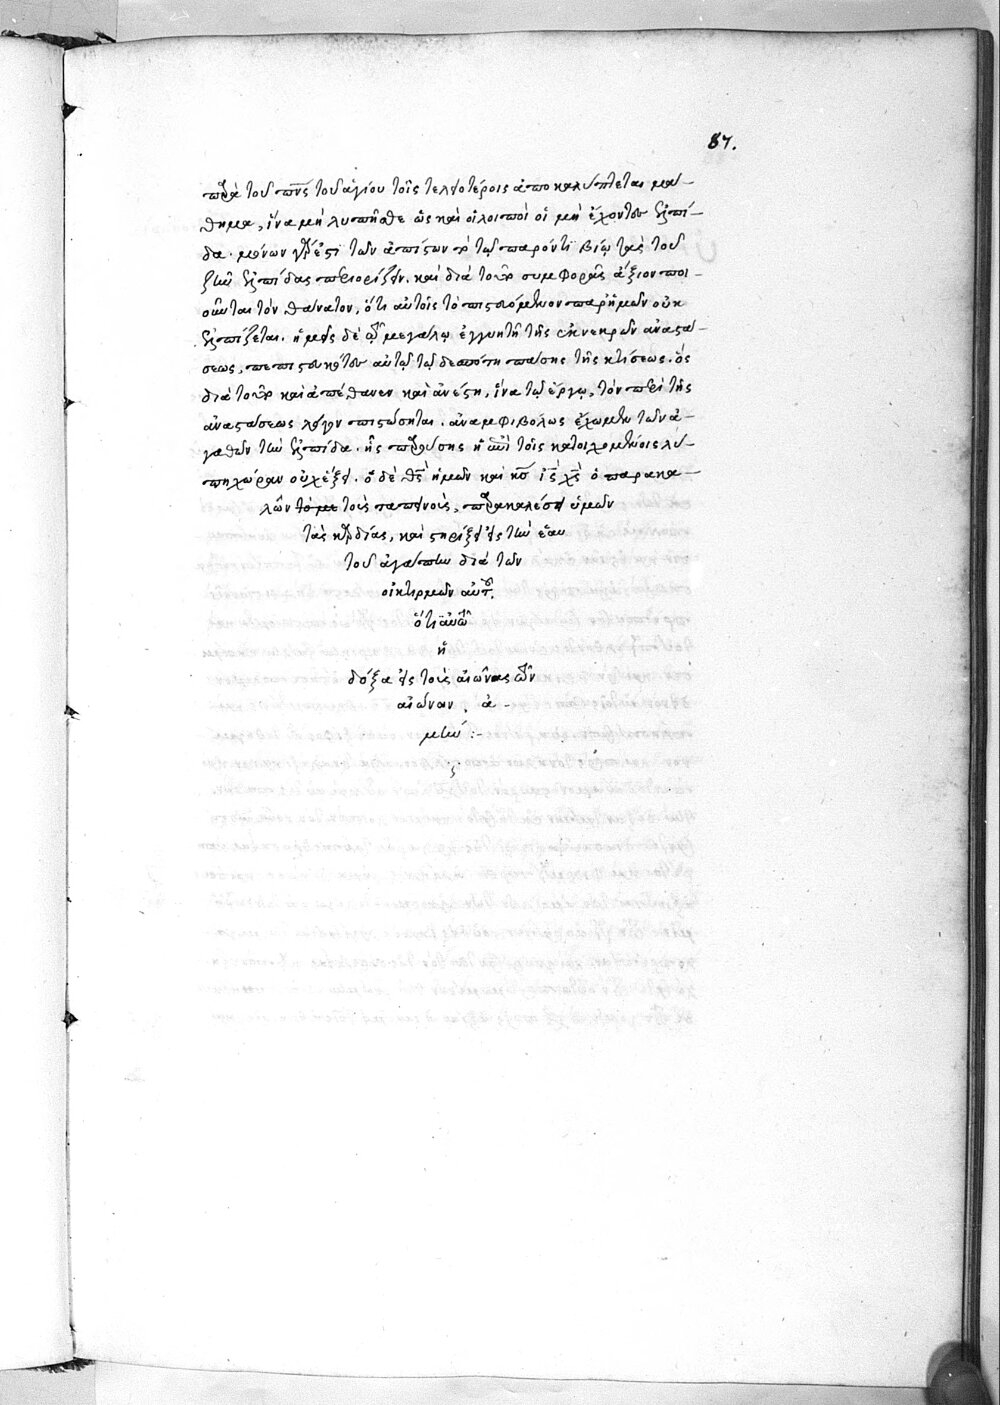 87.
παρὰ τοῦ πνς τοῦ ἁγίου τοῖς τελειοτέροις ἀποκαλύπτεται μά-
θημα, ἵνα μὴ λυπῆσθε ὡς καὶ οἱ λοιποὶ οἱ μὴ ἔχοντες ἐλπί-
δα. μόνων γάρ ἐστι τῶν ἀπίστων ἐν τῷ παρόντι βίῳ τὰς τοῦ
ζῆν ἐλπίδας περιορίζειν. καὶ διὰ τοῦτο συμφορᾶς ἄξιον ποι-
οῦνται τὸν θάνατον, ὅτι αὐτοῖς τὸ πιστευόμενον παρ' ἡμῶν οὐκ
ἐλπίζεται. ἡμεῖς δὲ τῷ μεγάλῳ ἐγγυητῇ τῆς ἐκ νεκρῶν ἀναστά-
σεως, πεπιστευκότες αὐτῷ τῷ δεσπότῃ πάσης τῆς κτίσεως. ὃς
διὰ τοῦτο καὶ ἀπέθανεν καὶ ἀνέστη, ἵνα τῷ ἔργῳ, τὸν περὶ τῆς
ἀναστάσεως λόγον πιστώσηται. ἀναμφιβόλως ἔχωμεν τῶν ἀ-
γαθῶν τὴν ἐλπίδα. ἧς παρούσης ἡ ἐπὶ τοῖς κατοιχομένοις λύ-
πη χώραν οὐχ ἕξει. ὁ δὲ θς ἡμῶν καὶ κς ις χς ὁ παρακα-
λῶν τοὺς ταπεινούς, παρακαλέσει ὑμῶν
τὰς καρδίας, καὶ στηρίξει εἰς τὴν ἑαυ
τοῦ ἀγάπην διὰ τῶν
οἰκτιρμῶν αὐτοῦ.
ὅτι αὐτῷ
ἡ
δόξα εἰς τοὺς αἰῶνας τῶν
αἰώνων, ἀ-
μήν :-